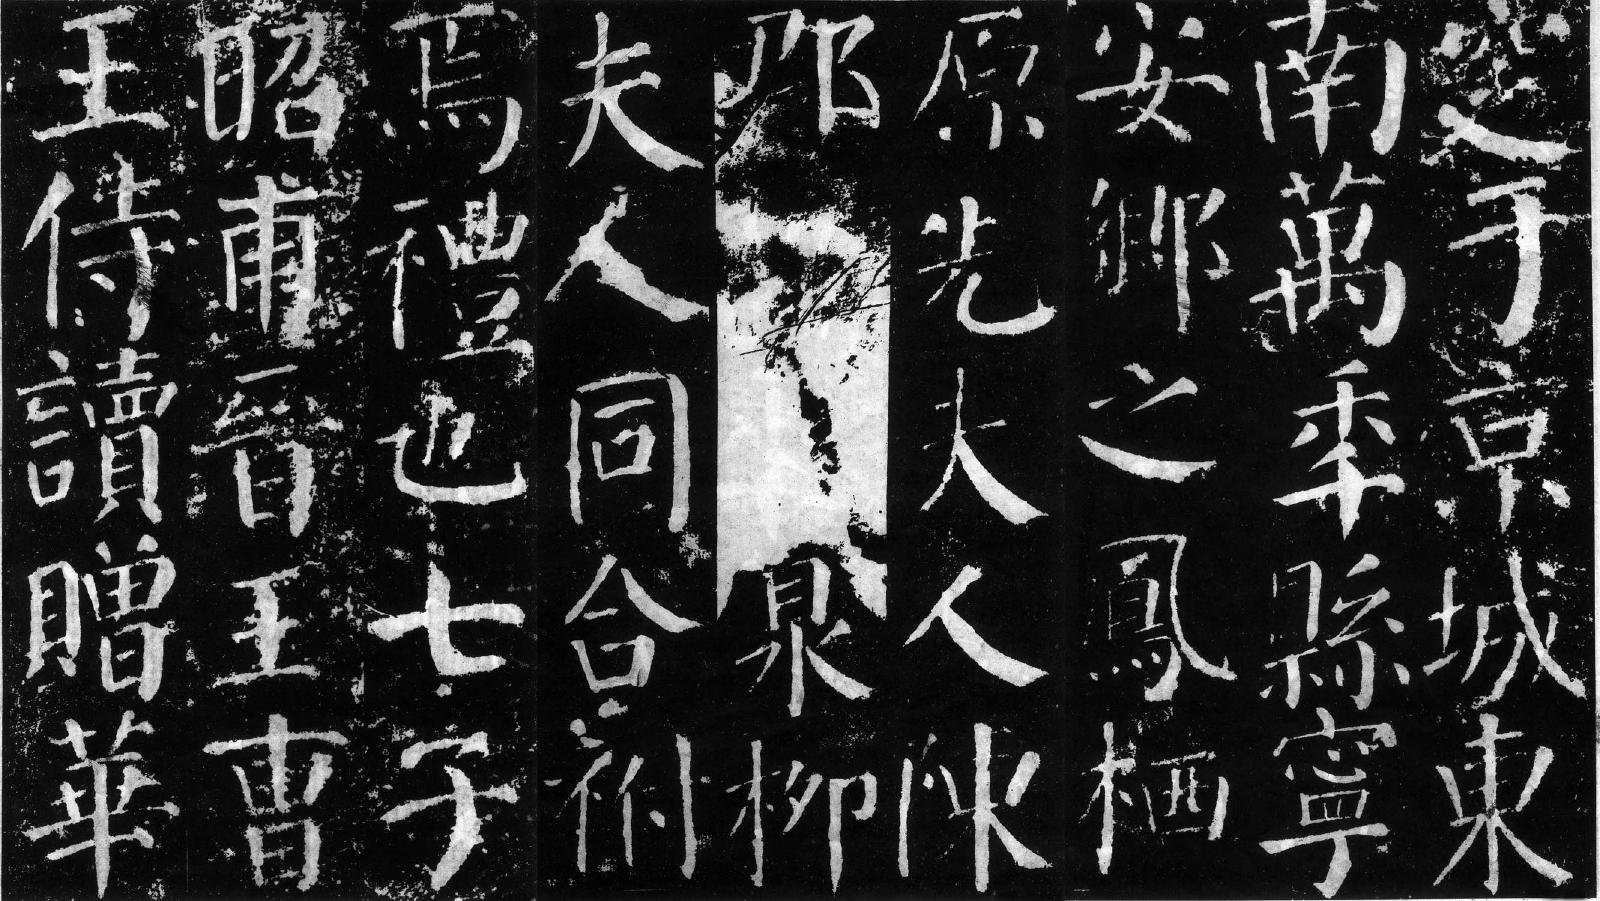 窆于京城東
南萬年縣寧
安鄉之鳳栖
原先夫人陳
泉柳
夫人同合祔
焉禮也七子
昭甫晉王曹
王侍讀贈華